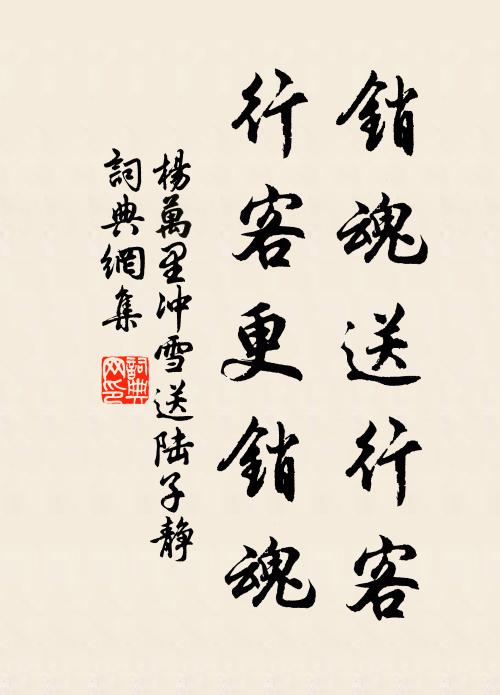 銷魂送行客
行客更銷魂
楊萬里冲雪送陆子靜
詞典網集
詞典
网印